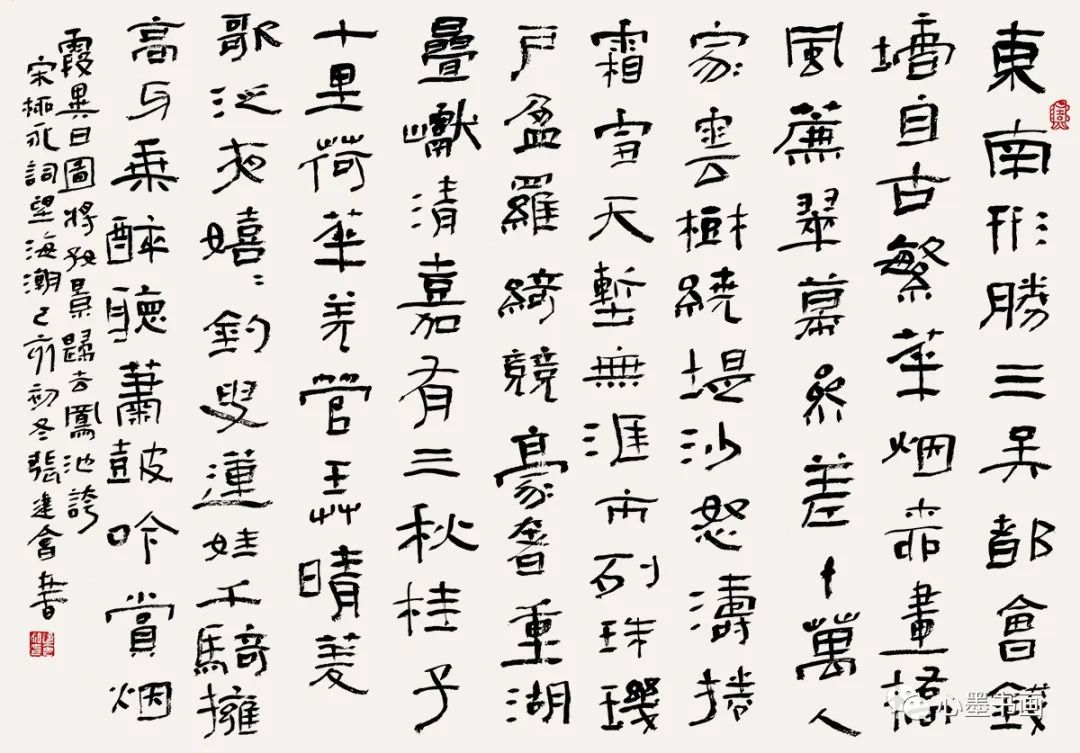 東南形勝三吴都會錢
塘自古繁華烟柳畫橋
風簾翠幕叅差十萬人
家雲樹繞堤沙怒濤捲
霜雪天塹無涯市列珠璣
户盈羅綺競豪奢重湖
疊巘清嘉有三秋桂子
十里荷華羌管弄晴菱
歌泛夜嬉々釣叟蓮娃千騎擁
高牙乘醉聽蕭鼓吟賞烟
霞異日圖將好景歸去鳳池誇
宋柳永詞望海潮己亥初冬張建會書
心墨书画